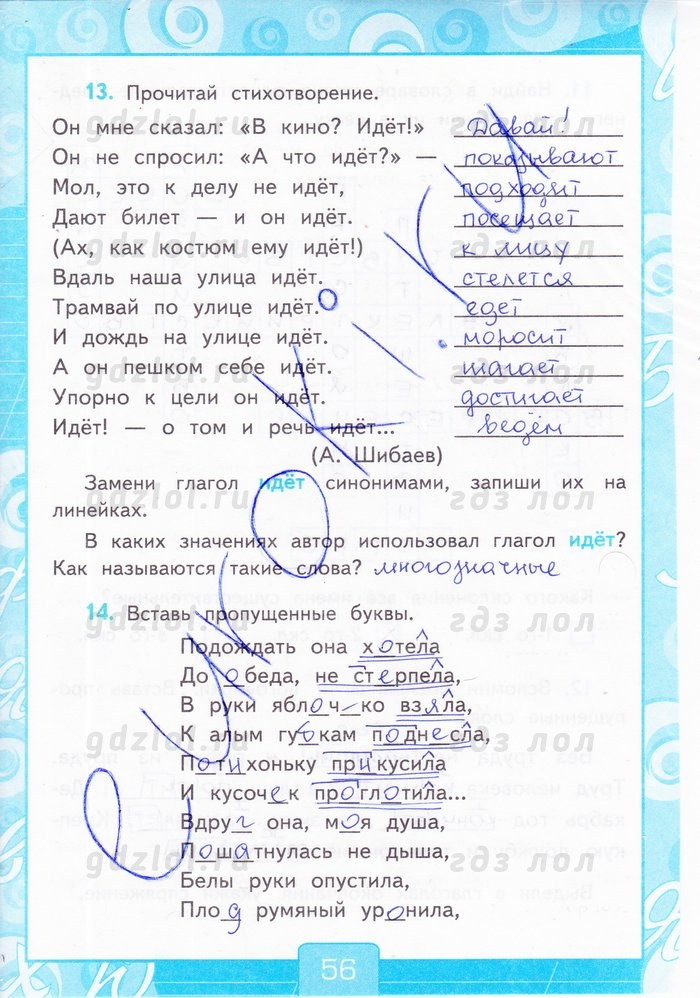 13. Прочитай стихотворение.
Он мне сказал: «В кино? Идёт!» Давай!
Он не спросил: «А что идёт?» — показывают
Мол, это к делу не идёт, подходит
Дают билет — и он идёт. посещает
(Ах, как костюм ему идёт!) к лицу
Вдаль наша улица идёт. стелется
Трамвай по улице идёт. едет
И дождь на улице идёт. моросит
А он пешком себе идёт. шагает
Упорно к цели он идёт. достигает
Идёт! — о том и речь идёт... ведём
(А. Шибаев)
Замени глагол идёт синонимами, запиши их на
линейках.
В каких значениях автор использовал глагол идёт?
Как называются такие слова? многозначные
14. Вставь пропущенные буквы.
Подождать она хотела
До обеда, не стерпела,
В руки яблоч-ко взяла,
К алым губкам поднесла,
Потихоньку прикусила
И кусочек проглотила...
Вдруг она, моя душа,
Пошатнулась не дыша,
Белы руки опустила,
Плод румяный уронила,
56
gdzlol.ru гдз лол
gdzlol.ru гдз лол
gdzlol.ru гдз лол
gdzlol.ru гдз лол
gdzlol.ru гдз лол
gdzlol.ru гдз лол
gdzlol.ru гдз лол
gdzlol.ru гдз лол